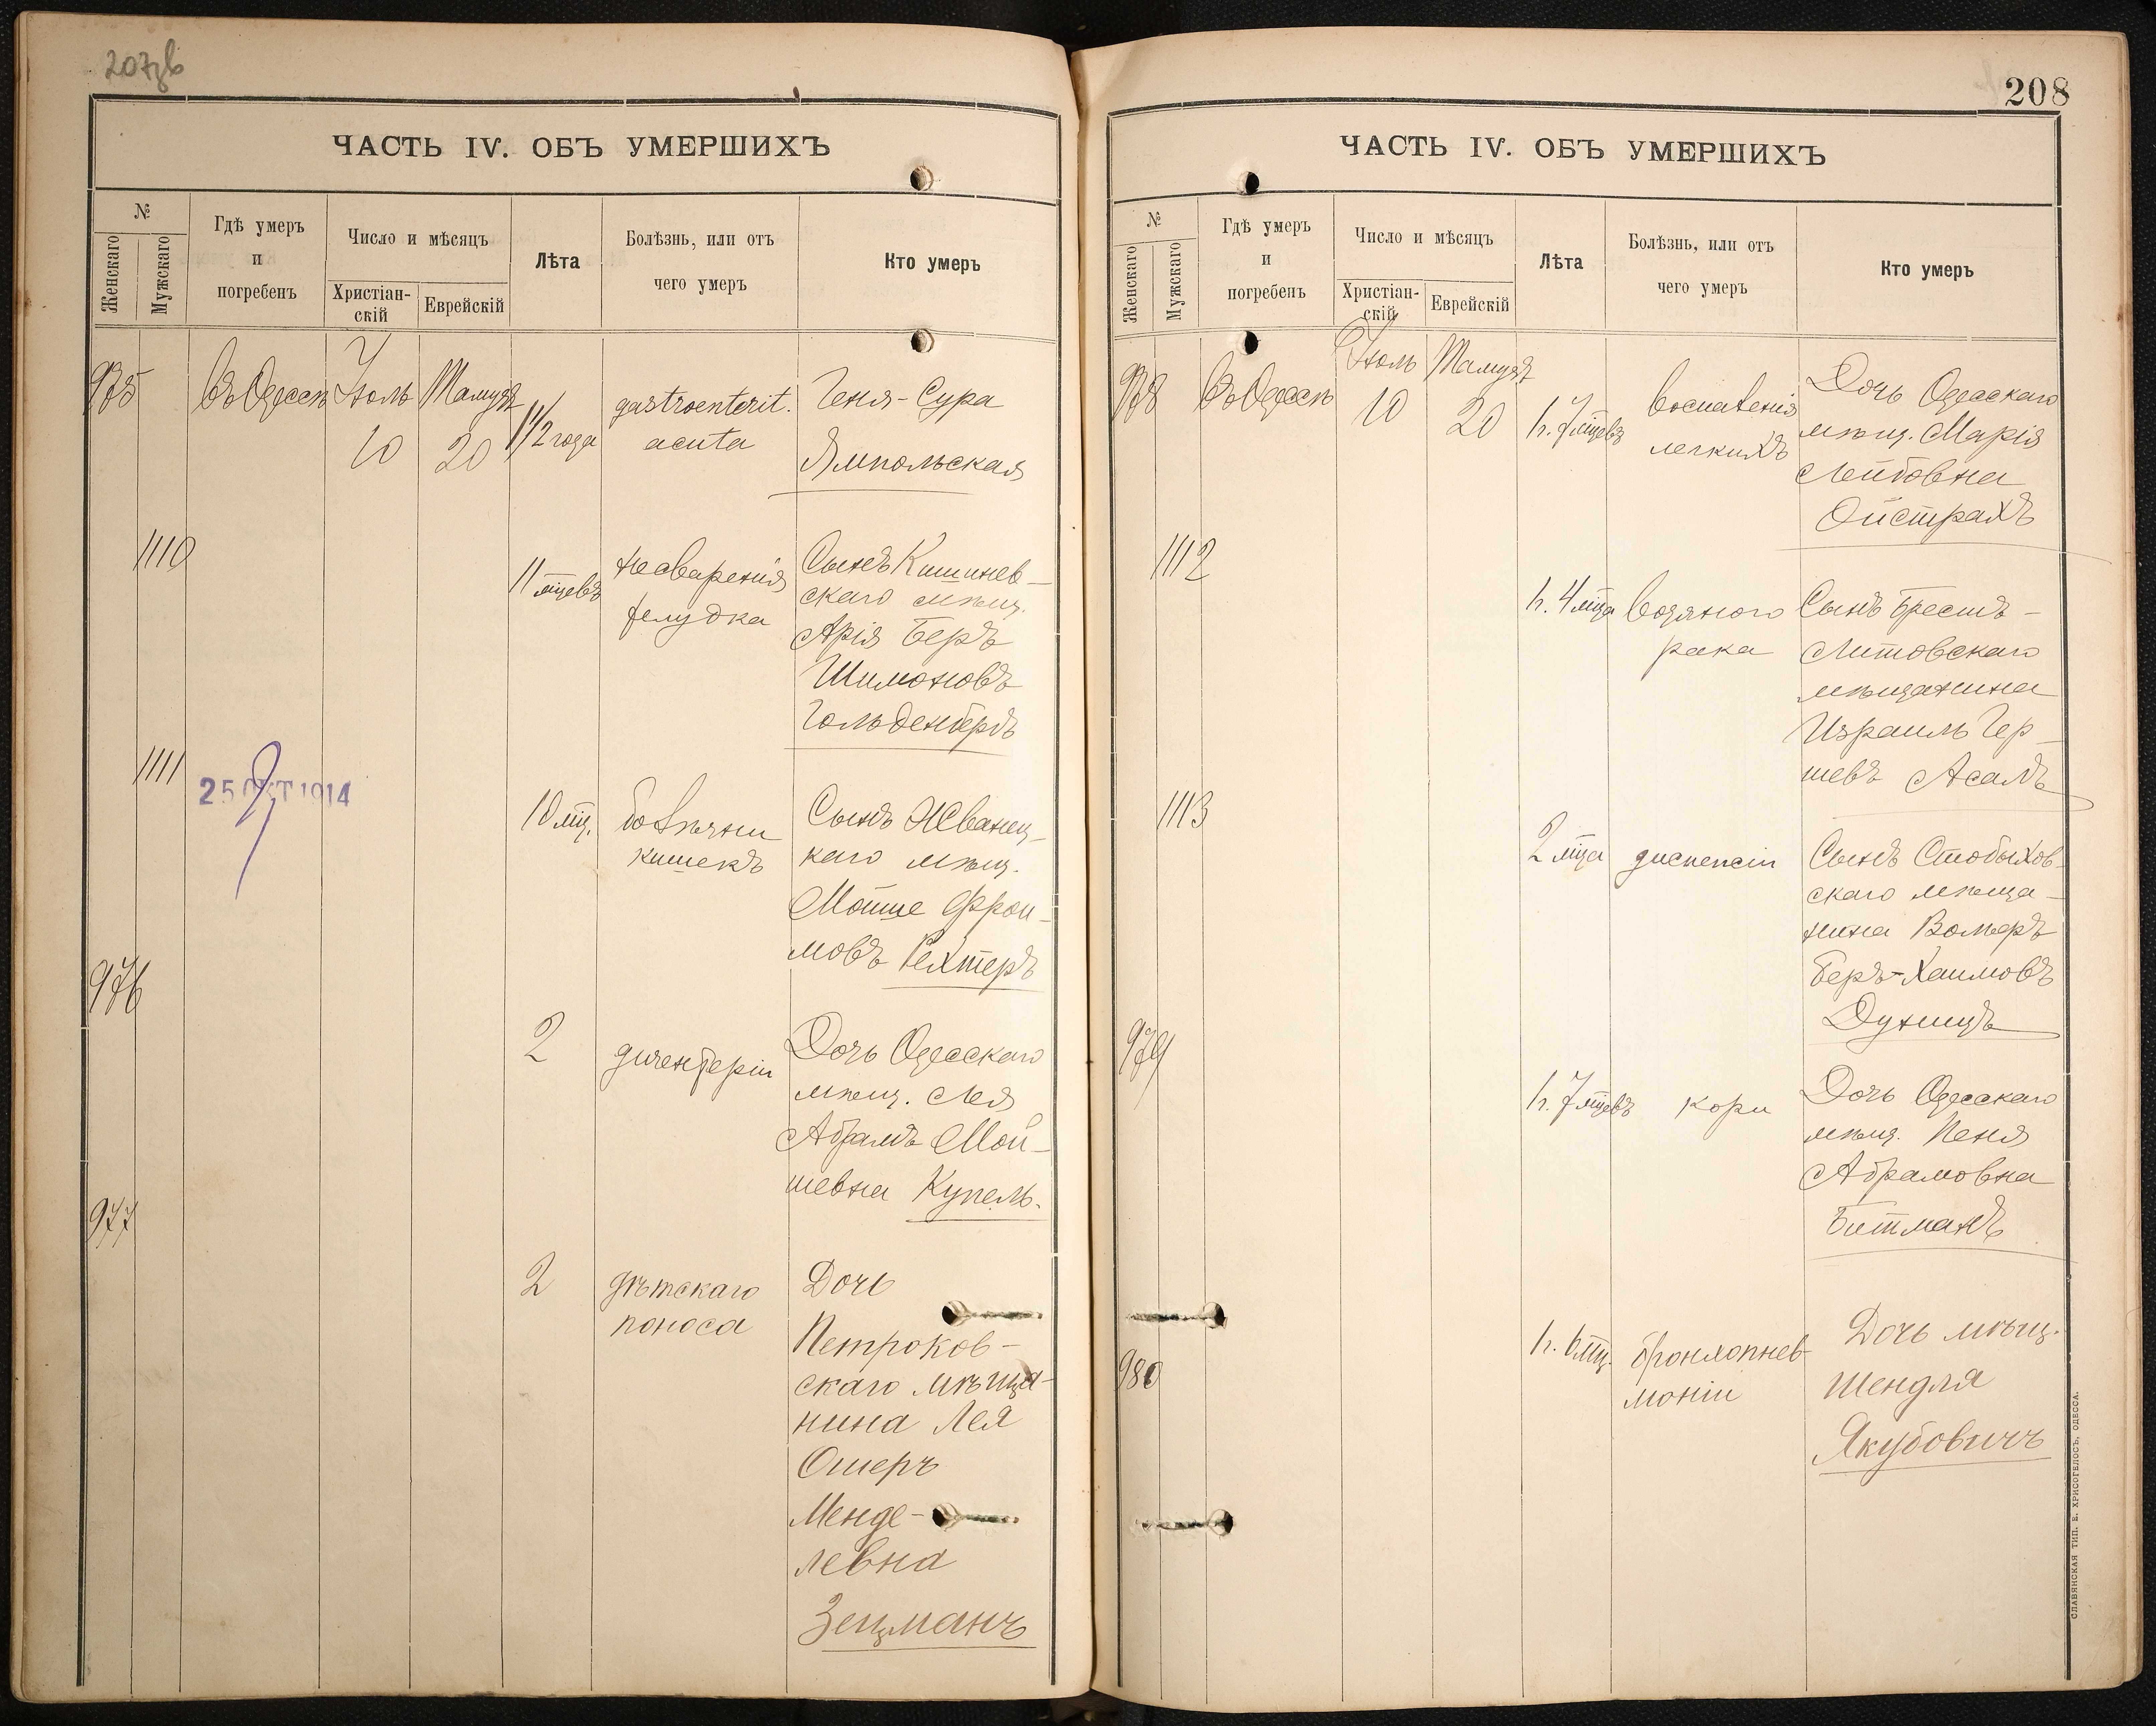 207об
ЧАСТЬ IV. ОБЪ УМЕРШИХЪ
№
Женскаго
Мужскаго
Гдѣ умеръ
и
погребенъ
Число и мѣсяцъ
Христіан-
скій
Еврейскій
Лѣта
Болѣзнь, или отъ
чего умеръ
Кто умеръ
975
въ Одессѣ
Іюль
10
Тамузъ
20
1 1/2 года
gastroenterit.
acuta
Геня-Сура
Ямпольская
1110
11 мцевъ
несваренія
желудка
Сынъ Кишинев-
скаго мѣщ.
Арія Беръ
Шимоновъ
Гольденбергъ
1111
25 ОКТ 1914
10 мц.
болѣзни
кишекъ
Сынъ Жванец-
каго мѣщ.
Мойше Фрои-
мовъ Рехтеръ
976
2
дизентеріи
Дочь Одесскаго
мѣщ. Лея
Абрамъ Мой-
шевна Купель.
977
2
дѣтскаго
поноса
Дочь
Петроков-
скаго мѣща-
нина Лея
Ошеръ
Менде-
левна
Зецманъ
208
ЧАСТЬ IV. ОБЪ УМЕРШИХЪ
№
Женскаго
Мужскаго
Гдѣ умеръ
и
погребенъ
Число и мѣсяцъ
Христіан-
скій
Еврейскій
Лѣта
Болѣзнь, или отъ
чего умеръ
Кто умеръ
978
въ Одессѣ
Іюль
10
Тамузъ
20
1 г. 7 мцевъ
воспаленія
легкихъ
Дочь Одесскаго
мѣщ. Марія
Лейбовна
Ойстрахъ
1112
1 г. 4 мца
водяного
рака
Сынъ Брестъ-
Литовскаго
мѣщанина
Израиль Гер-
шевъ Асамъ
1113
2 мца
диспепсіи
Сынъ Стобыхов-
скаго мѣща-
нина Вольфъ
Беръ-Хаимовъ
Духицъ
979
1 г. 7 мцевъ
кори
Дочь Одесскаго
мѣщ. Пеня
Абрамовна
Битманъ
980
1 г. 6 мц.
бронхопнев-
моніи
Дочь мѣщ.
Шендля
Якубовичъ
СЛАВЯНСКАЯ ТИП. Е. ХРИСОГЕЛОСЪ, ОДЕССА.